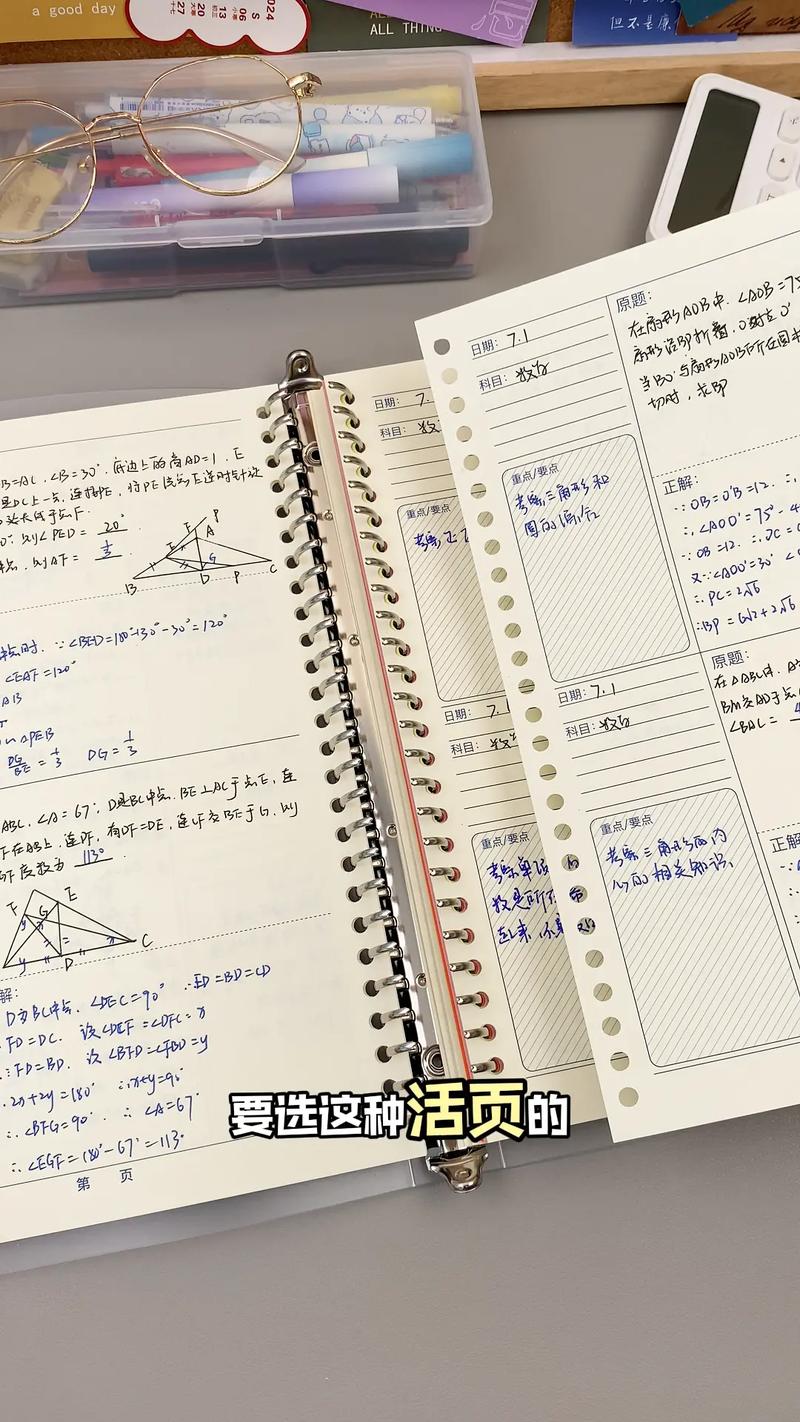 a good day
2024
S
06
13
20
27
小寒
初三
大寒
十七
ALL THING
但不是原
B=AC, ∠B=30°, 底边上的高AD=1, E
是DC上一点, 连接PE, 将PE绕点E逆时针旋
∠PED = 20°
AF =
P
F
A
E
G
B
D
P
C
时, ∵∠BED=180°-30°-30°=120°
∠EAF=120°
AB
△PEB
DG/BE = 1/3 DG = 1/3
ABC, ∠A=67°, D是BC中点, BE⊥AC于点E, 连
F在AB上, 连DF, 有DF=DE, 连CF交BE于G, 则
度数为 113°
F
G
E
y
D
C
解:
D为BC中点, ∠DEC=90° ∴ED=BD=CD
FD=DC, 设∠DCF=∠DFC=x
∵FD=BD, 设∠BFD=∠FBD=y
2x+2y=180° ∴x+y=90°
∴∠BFG=90° ∵∠A=67°
∴∠EGF=180°-67°=113°
第 页
日期: 7.
科目: 数
重点/要点
考察正
日期: 7.1
科目: 数学
重点/要点
考察单项
数是所
起来, 不
日期: 7.1
科目: 数学
重点/要点
考察三角形和
圆的综合
原题:
在扇形AOB中, ∠AOB=75
扇形沿BP折叠, O对应O'
当BO'与扇形AOB所在圆相
切时, 求BP
正解:
∵OB=O'B=12, ∴
∴∠AOO'=75°-4
∵OB=12, ∴OC=
又∵∠AOO'=30°
∴PC=2√6
∴BP=6√2+2√6
日期: 7.1
科目: 数学
重点/要点
考察三角形内
心的相关知识,
原题:
在△ABC中, A
BM交AD于点
∠BAC=
正解
要选这种活页的